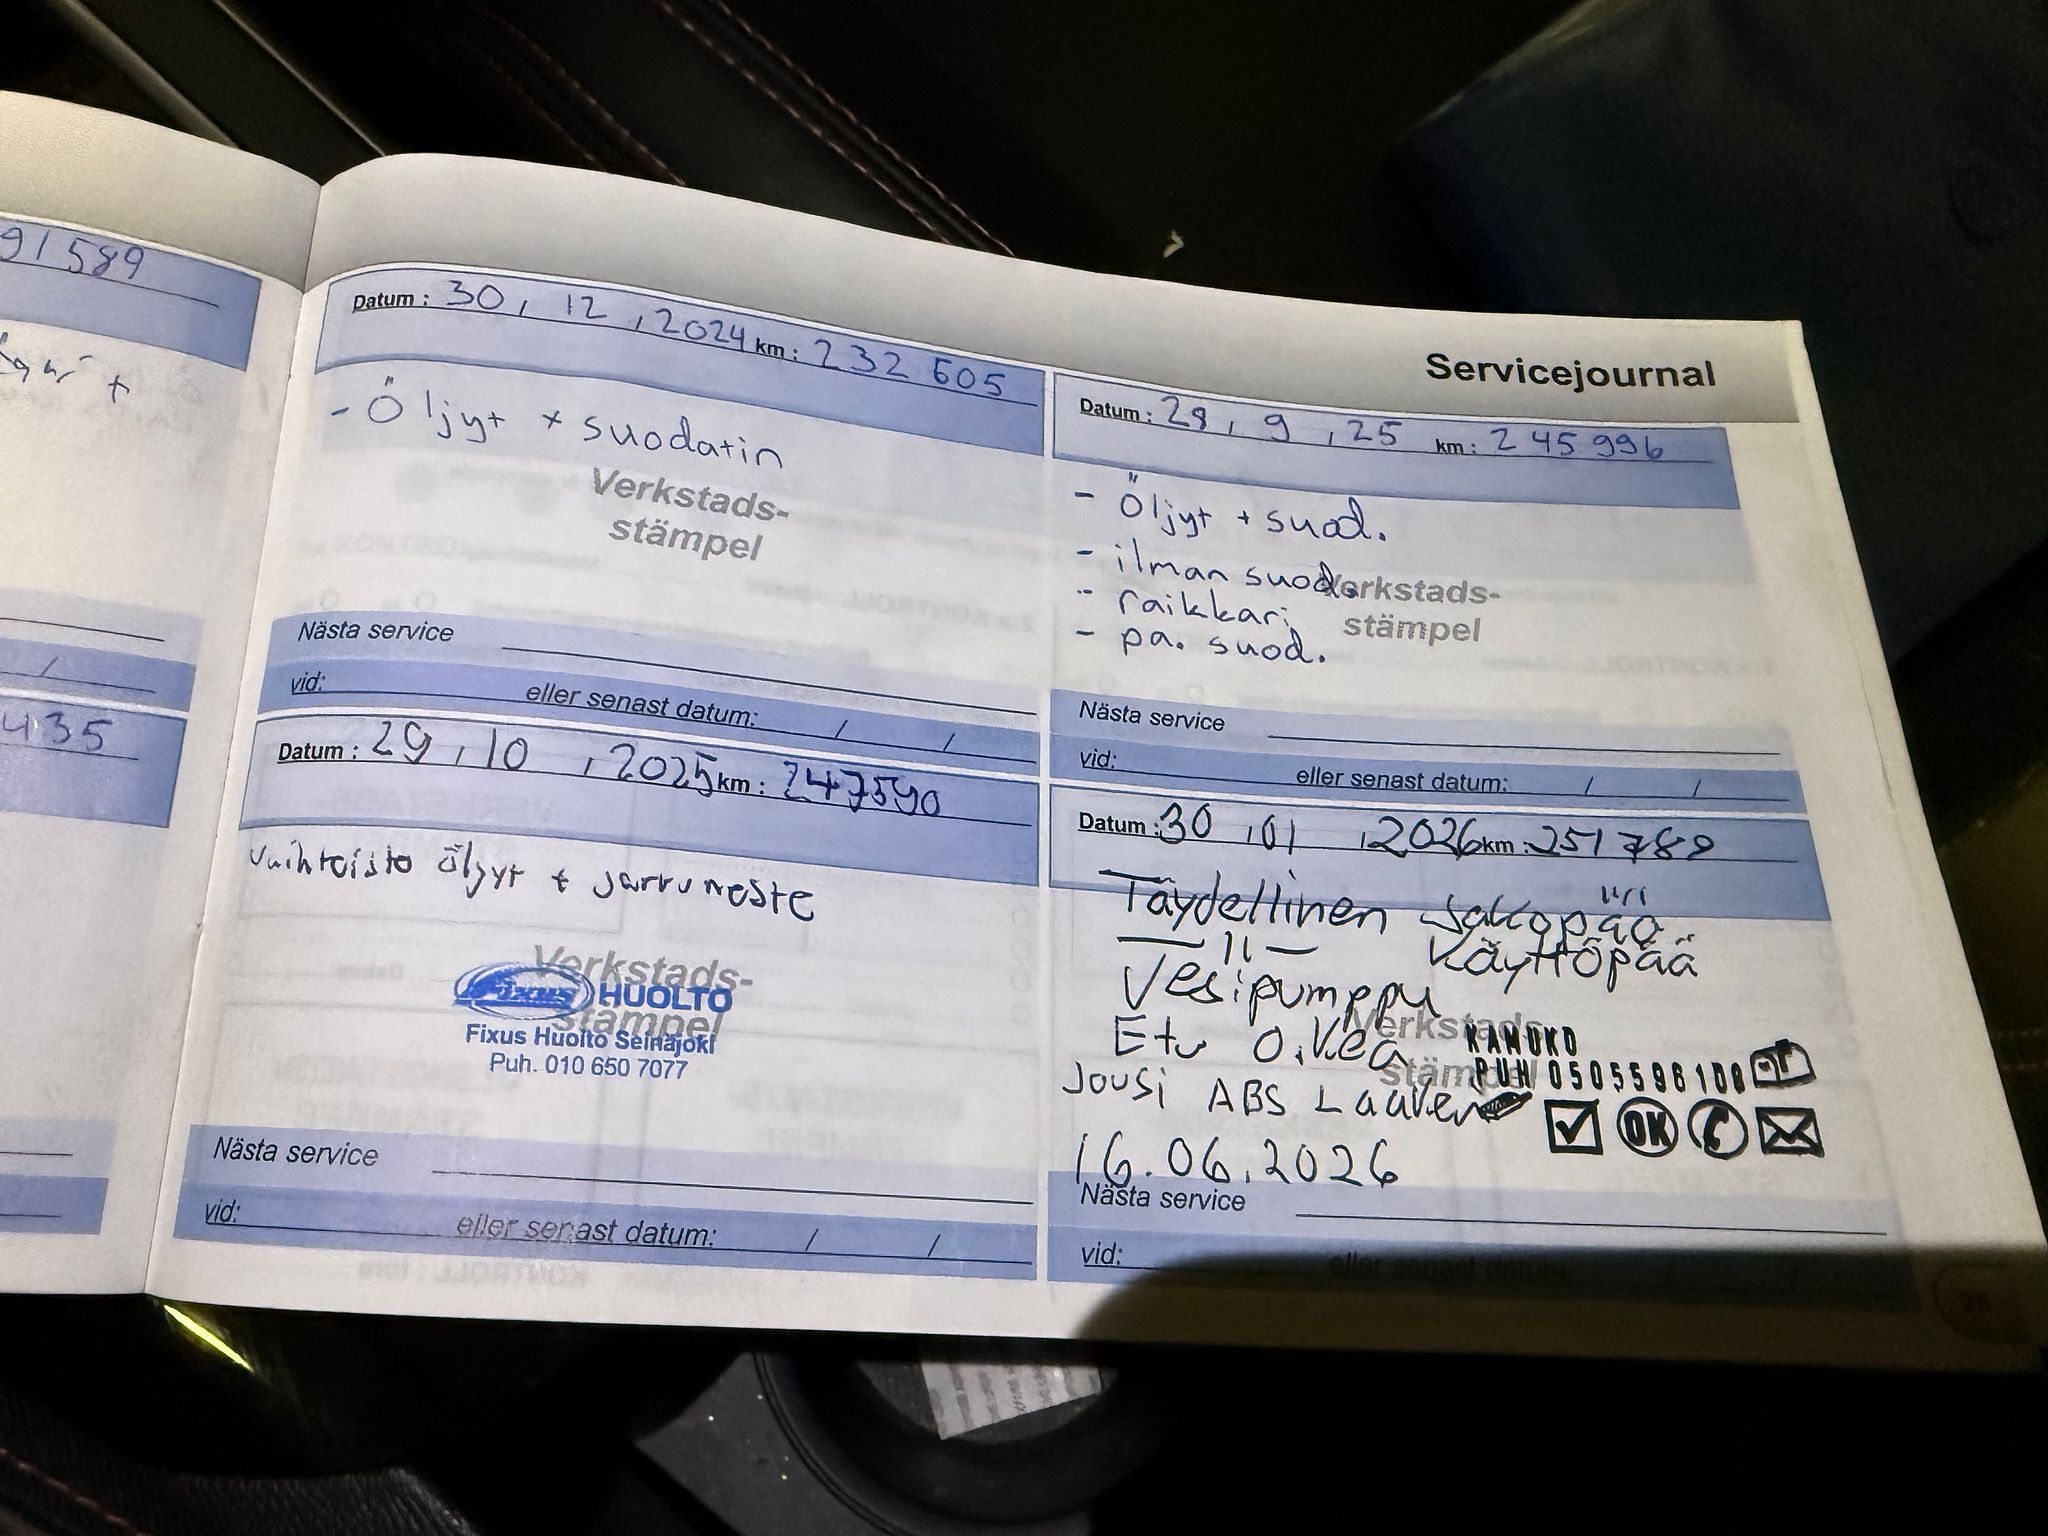 91589
+
435
Servicejournal
Datum : 30, 12, 2024 km : 232 605
- Öljyt + suodatin
Verkstads-
stämpel
Nästa service
vid: eller senast datum: / /
Datum : 29, 9, 25 km : 245 996
- Öljyt + suod.
- ilman suod.
- raikkari
- pa. suod.
Verkstads-
stämpel
Nästa service
vid: eller senast datum: / /
Datum : 29, 10, 2025 km : 247590
vaihteisto öljyt + jarruneste
Verkstads-
stämpel
Fixus HUOLTO
Fixus Huolto Seinäjoki
Puh. 010 650 7077
Nästa service
vid: eller senast datum: / /
Datum : 30, 01, 2026 km : 251 789
Täydellinen Jakopää
— 11 — Käyttöpää
Vesipumppu
Etu o.Vea
Jousi ABS
16.06.2026
Verkstads-
stämpel
KAMOKO
PUH 0505596108
OK
Nästa service
vid: eller senast datum: